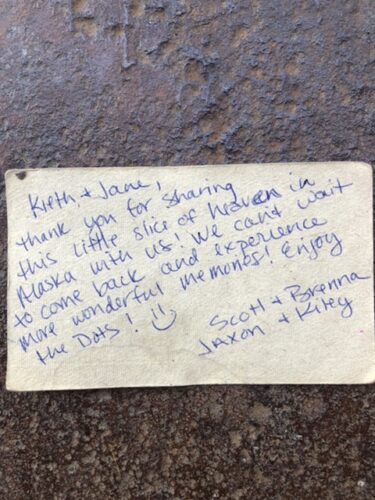 Kieth + Jane,
thank you for sharing
this little slice of heaven in
Alaska with us! We can't wait
to come back and experience
more wonderful memories! Enjoy
the Dots! :)
Scott + Brenna
Jaxon + Kiley